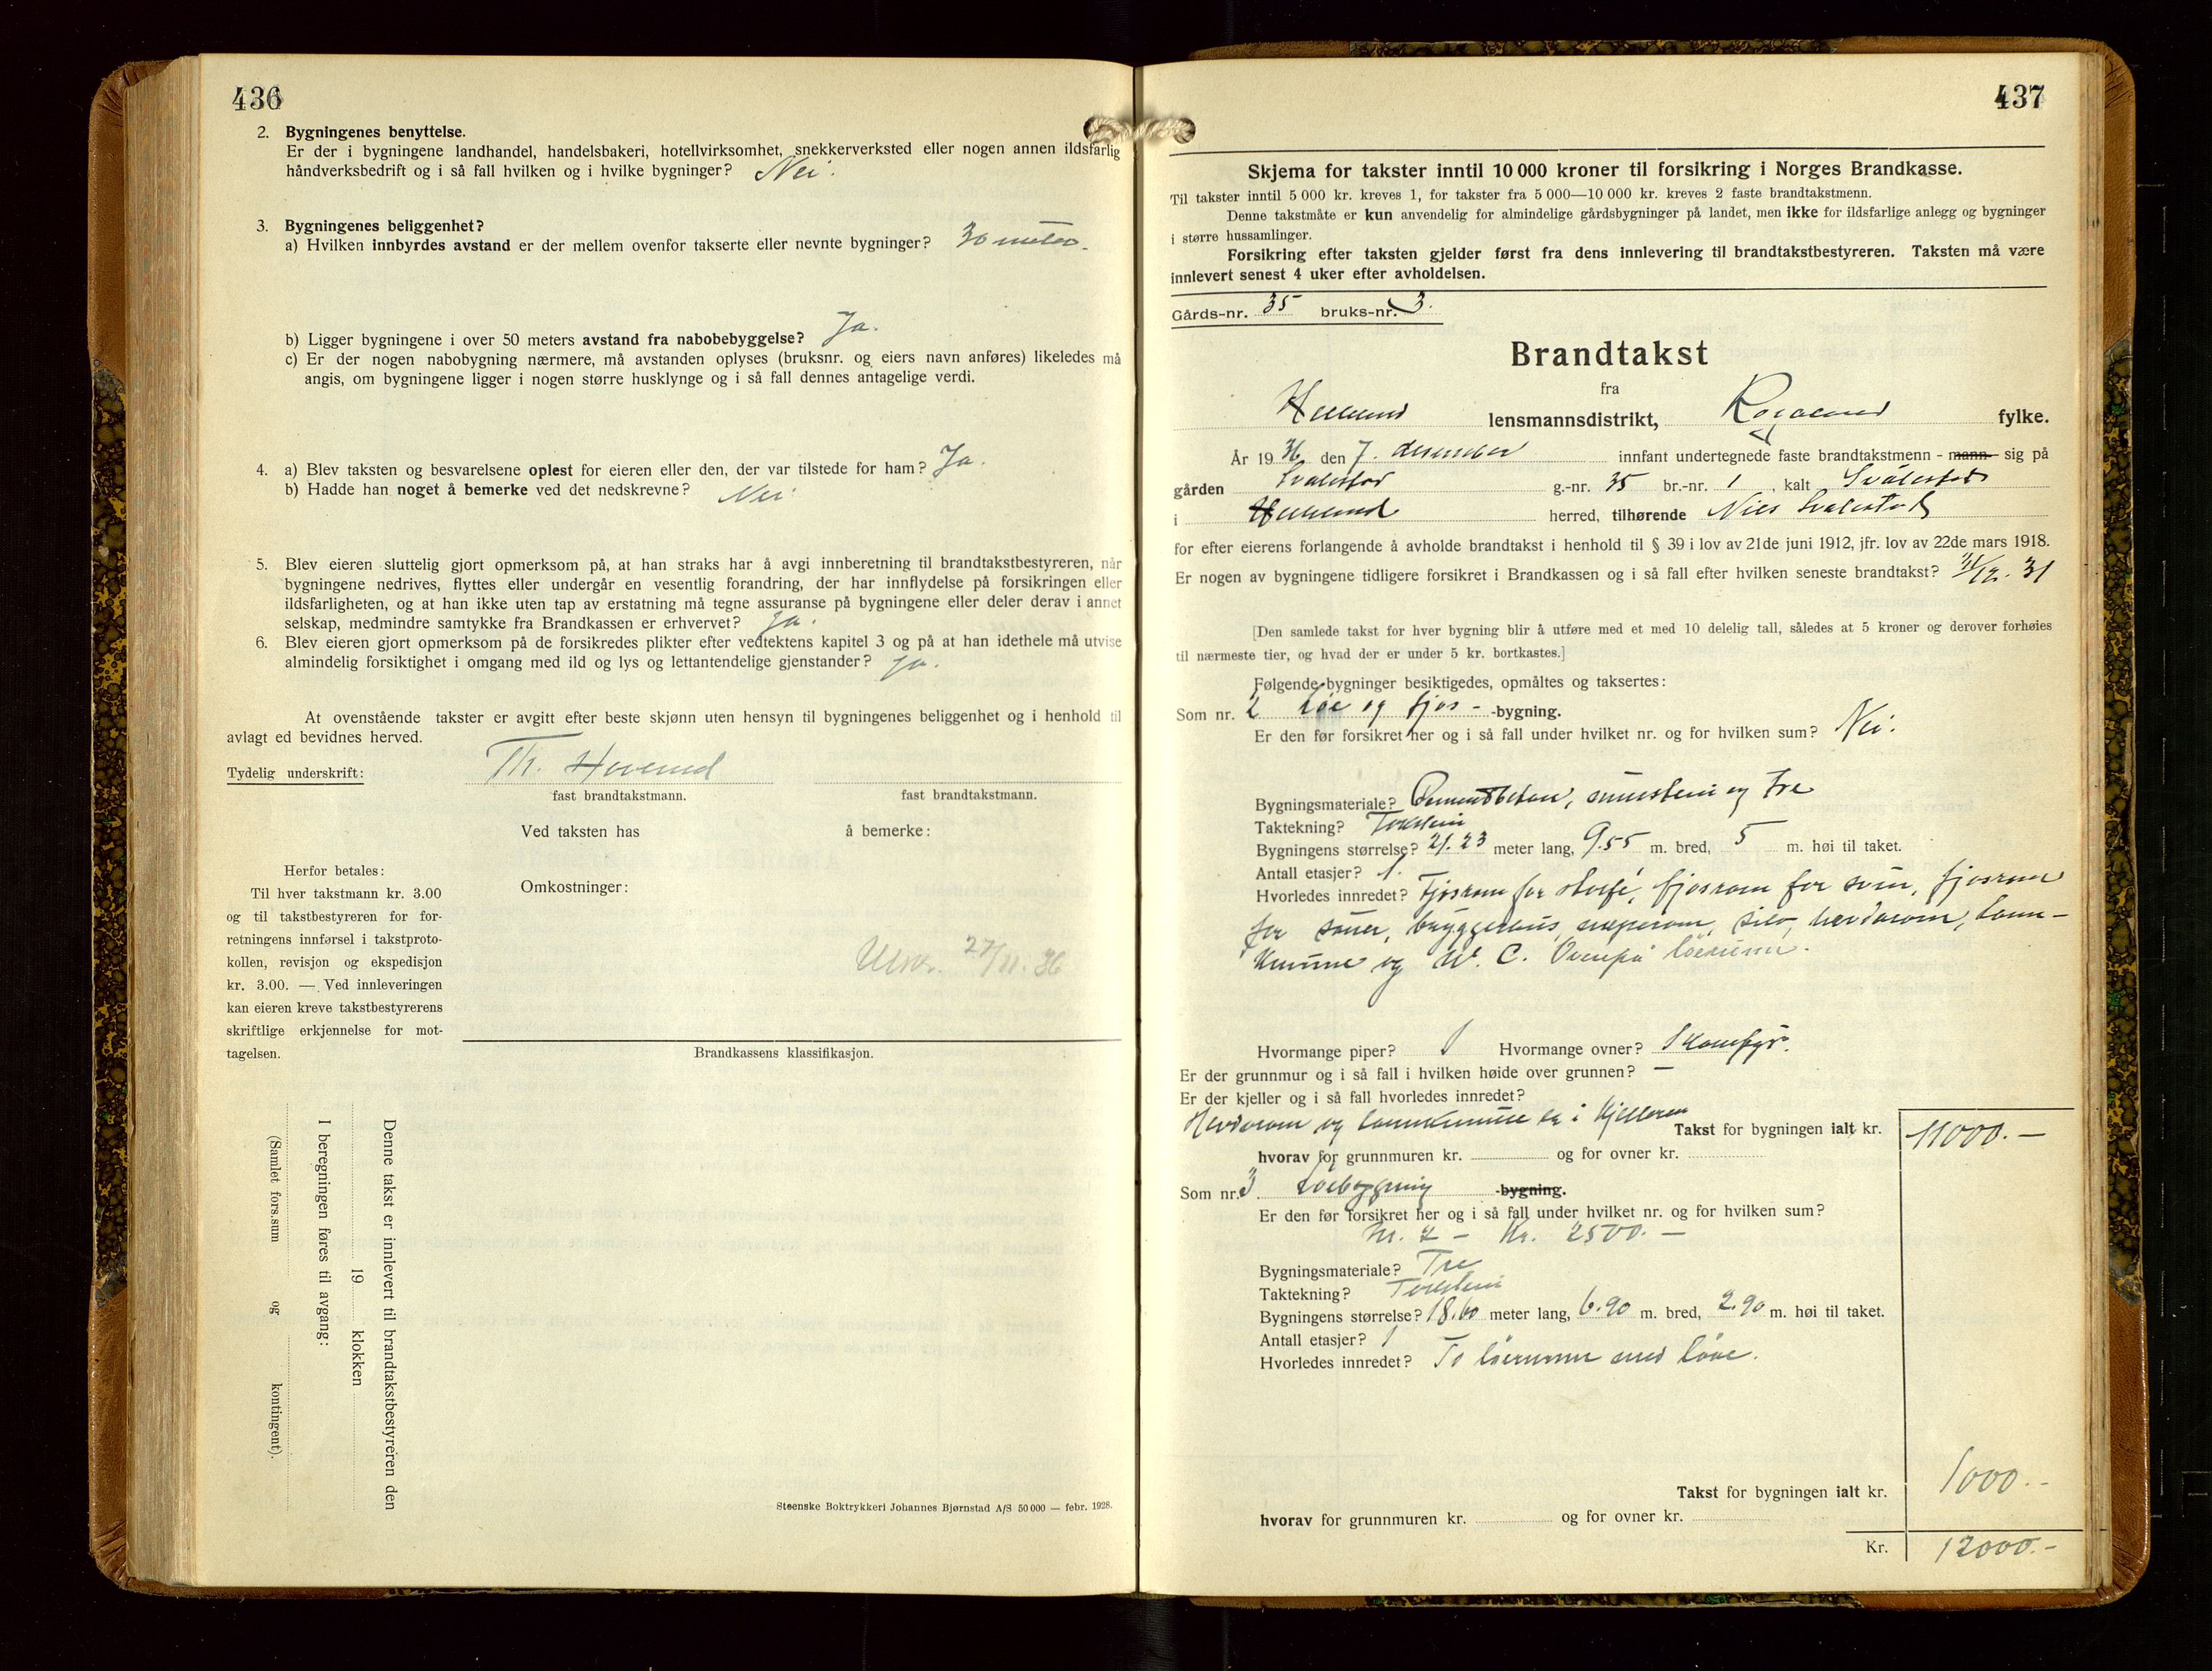 436
2. Bygningenes benyttelse.
Er der i bygningene landhandel, handelsbakeri, hotellvirksomhet, snekkerverksted eller nogen annen ildsfarlig
håndverksbedrift og i så fall hvilken og i hvilke bygninger? Nei.
3. Bygningenes beliggenhet?
a) Hvilken innbyrdes avstand er der mellem ovenfor takserte eller nevnte bygninger? 30 meter.
b) Ligger bygningene i over 50 meters avstand fra nabobebyggelse? Ja.
c) Er der nogen nabobygning nærmere, må avstanden oplyses (bruksnr. og eiers navn anføres) likeledes må
angis, om bygningene ligger i nogen større husklynge og i så fall dennes antagelige verdi.
4. a) Blev taksten og besvarelsene oplest for eieren eller den, der var tilstede for ham? Ja.
b) Hadde han noget å bemerke ved det nedskrevne? Nei.
5. Blev eieren sluttelig gjort opmerksom på, at han straks har å avgi innberetning til brandtakstbestyreren, når
bygningene nedrives, flyttes eller undergår en vesentlig forandring, der har innflydelse på forsikringen eller
ildsfarligheten, og at han ikke uten tap av erstatning må tegne assuranse på bygningene eller deler derav i annet
selskap, medmindre samtykke fra Brandkassen er erhvervet? Ja.
6. Blev eieren gjort opmerksom på de forsikredes plikter efter vedtektens kapitel 3 og på at han idethele må utvise
almindelig forsiktighet i omgang med ild og lys og lettantendelige gjenstander? Ja.
At ovenstående takster er avgitt efter beste skjønn uten hensyn til bygningenes beliggenhet og i henhold til
avlagt ed bevidnes herved.
Tydelig underskrift: Th.
fast brandtakstmann. fast brandtakstmann.
Ved taksten has å bemerke:
Herfor betales:
Til hver takstmann kr. 3.00
og til takstbestyreren for for-
retningens innførsel i takstproto-
kollen, revisjon og ekspedisjon
kr. 3.00. — Ved innleveringen
kan eieren kreve takstbestyrerens
skriftlige erkjennelse for mot-
tagelsen.
Omkostninger:
27/11. 36
Brandkassens klassifikasjon.
Denne takst er innlevert til brandtakstbestyreren den
19 klokken
I beregningen føres til avgang:
(Samlet fors.sum og kontingent).
Steenske Boktrykkeri Johannes Bjørnstad A/S 50 000 — febr. 1928.
437
Skjema for takster inntil 10 000 kroner til forsikring i Norges Brandkasse.
Til takster inntil 5 000 kr. kreves 1, for takster fra 5 000—10 000 kr. kreves 2 faste brandtakstmenn.
Denne takstmåte er kun anvendelig for almindelige gårdsbygninger på landet, men ikke for ildsfarlige anlegg og bygninger
i større hussamlinger.
Forsikring efter taksten gjelder først fra dens innlevering til brandtakstbestyreren. Taksten må være
innlevert senest 4 uker efter avholdelsen.
Gårds-nr. 35 bruks-nr. 3.
Brandtakst
fra
Helleland lensmannsdistrikt, Rogaland fylke.
År 1936 den 7. desember innfant undertegnede faste brandtakstmenn - mann sig på
gården Svalestad g.-nr. 35 br.-nr. 1, kalt Svalestad
i Helleland herred, tilhørende Nils Svalestad
for efter eierens forlangende å avholde brandtakst i henhold til § 39 i lov av 21de juni 1912, jfr. lov av 22de mars 1918.
Er nogen av bygningene tidligere forsikret i Brandkassen og i så fall efter hvilken seneste brandtakst? /12. 31
[Den samlede takst for hver bygning blir å utføre med et med 10 delelig tall, således at 5 kroner og derover forhøies
til nærmeste tier, og hvad der er under 5 kr. bortkastes.]
Følgende bygninger besiktigedes, opmåltes og taksertes:
Som nr. 2 Løe og fjøs- -bygning.
Er den før forsikret her og i så fall under hvilket nr. og for hvilken sum? Nei.
Bygningsmateriale? Cementbeton, murstein og tre
Taktekning? Takstein
Bygningens størrelse? 21.23 meter lang, 9.55 m. bred, 5 m. høi til taket.
Antall etasjer? 1.
Hvorledes innredet? Fjøsrom for storfé, fjøsrom for svin, fjøsrum
for sauer, bryggerhus, neperom, silo, hevdarom, lann-
kumme og W. C. Ovenpå løerumm.
Hvormange piper? 1 Hvormange ovner? 1 komfyr.
Er der grunnmur og i så fall i hvilken høide over grunnen? —
Er der kjeller og i så fall hvorledes innredet?
Hevdarom og lannkumme er i kjelleren Takst for bygningen ialt kr. 11000.—
hvorav for grunnmuren kr. og for ovner kr.
Som nr. 3 Løebygning -bygning.
Er den før forsikret her og i så fall under hvilket nr. og for hvilken sum?
Nr. 2 – Kr. 2500.—
Bygningsmateriale? Tre
Taktekning? Takstein
Bygningens størrelse? 18.60 meter lang, 6.90 m. bred, 2.90 m. høi til taket.
Antall etasjer? 1
Hvorledes innredet? To løerumm med låve.
Takst for bygningen ialt kr. 1000.-
hvorav for grunnmuren kr. og for ovner kr.
Kr. 12000.-